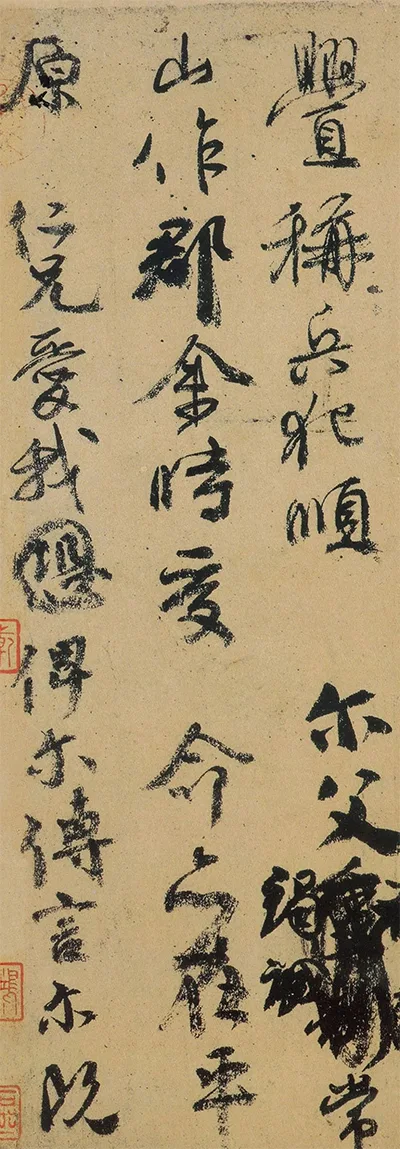 舋稱兵犯順 尔父竭誠常
山作郡余時受 命亦在平
原 仁兄愛我俾尔傳言尔既